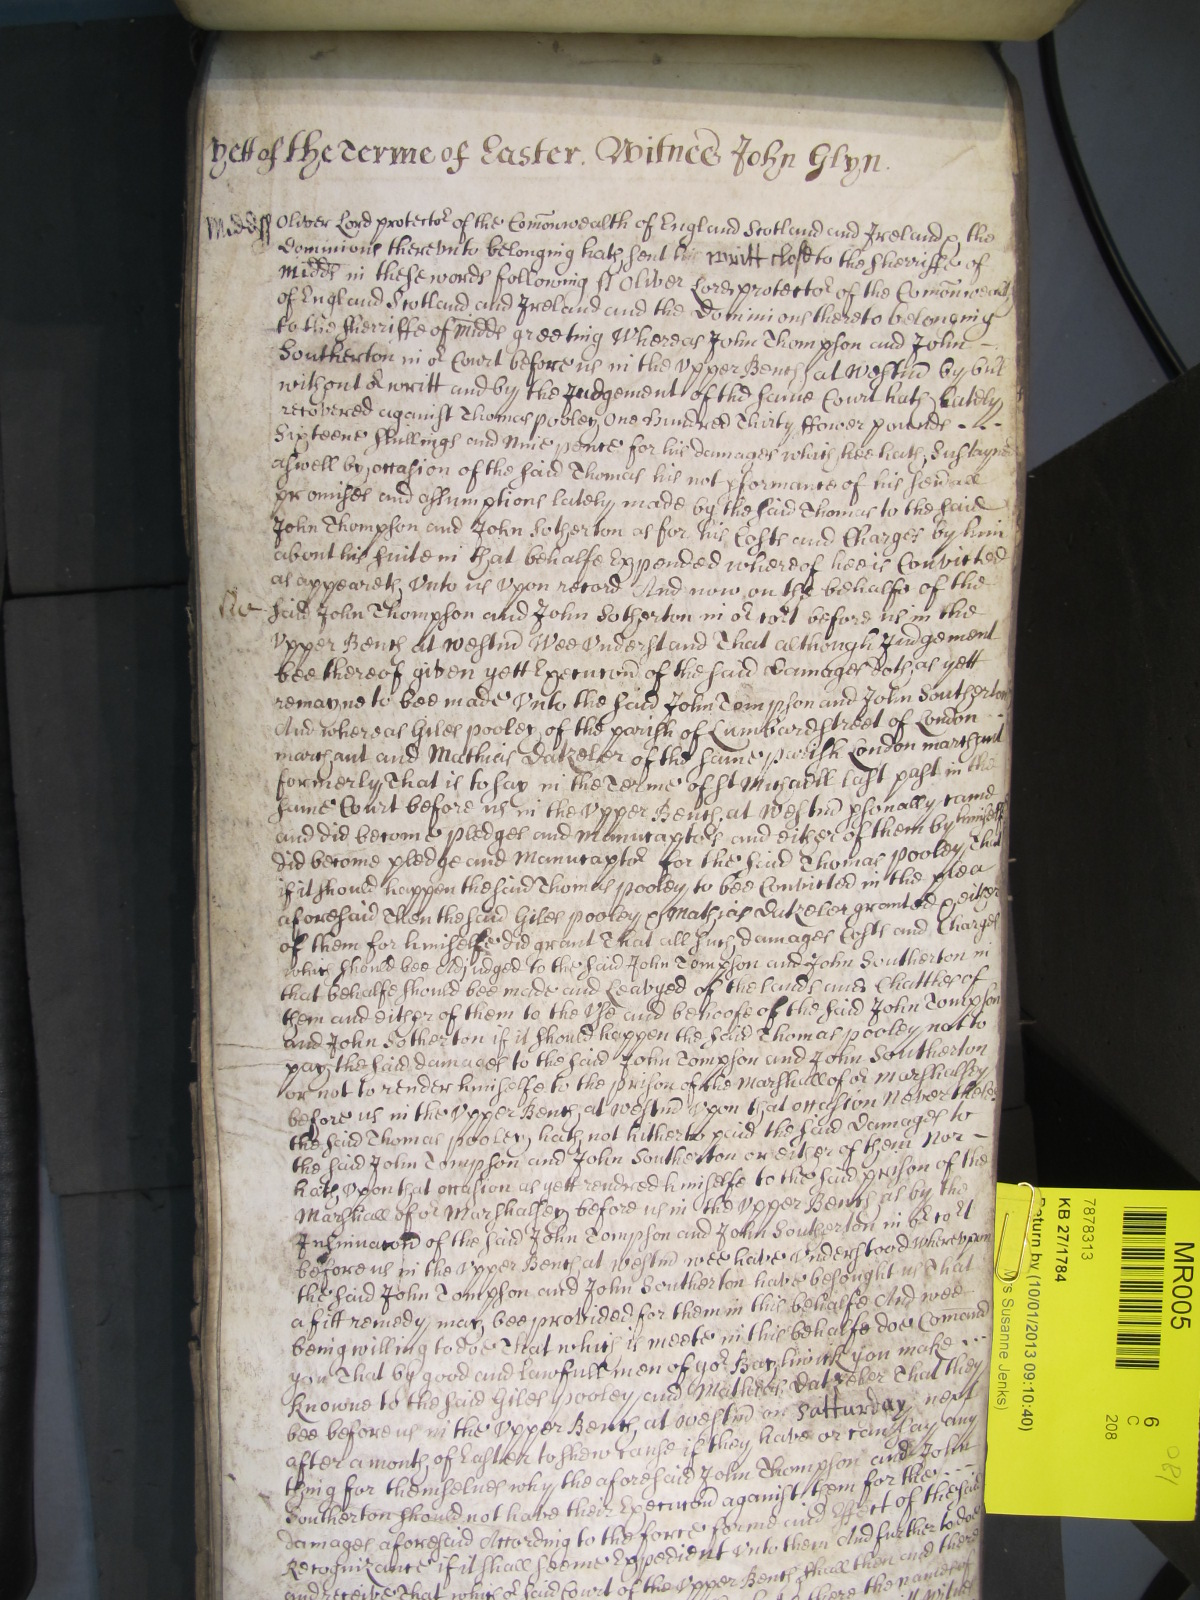 yett of the Terme of Easter. Witnes John Glyn.
Midds Oliver Lord protector of the Comonwealth of England Scotland and Ireland & the
dominions therevnto belonging hath sent his writt close to the Sherriffe of
Midds in these words following ss Oliver Lord protector of the Comonwealth
of England Scotland and Ireland and the Dominions thereto belonging
to the Sherriffe of Midds greeting Whereas John Thompson and John -
Southerton in or Court before us in the Vpper Bench at Westmr by bill
without or writt and by the Judgement of the same Court hath Lately
recovered against Thomas Pooley One hundred Thirty ffower pounds - - -
Sixteene shillings and Nine pence for his damages which hee hath Sustayned
aswell by occasion of the said Thomas his not pformance of his severall
promises and assumptions lately made by the said Thomas to the said
John Thompson and John Sotherton as for his Costs and Charges by him
about his suite in that behalfe Expended whereof hee is Convicted
as appeareth Vnto us Vpon record And now on the behalfe of the
said John Thompson and John Sotherton in or Cort before us in the
Vpper Bench at Westmr Wee Vnderstand That although Judgement
bee thereof given yett Execucon of the said Damages doth as yett
remayne to bee made Vnto the said John Tompson and John Southerton
And whereas Giles Pooley of the parish of Lumbardstreet of London - -
marchant and Mathias Datzeler of the same parish London marchant
formerly That is to say in the Terme of St Michaell last past in the
same Court before us in the Vpper Bench at Westmr psonally came
and did become pledges and Manucaptors and either of them by himself
did become pledge and Manucaptor for the said Thomas Pooley That
if it should happen the said Thomas Pooley to bee Convicted in the plea
aforesaid Then the said Giles Pooley & Mathias Dutzeler granted & either
of them for himselfe did grant That all such damages Costs and Charges
which should bee Adiudged to the said John Tompson and John Southerton in
that behalfe should bee made and Leavyed of the lands and Chattles of
them and either of them to the Vse and behoofe of the said John Tompson
and John Sotherton if it should happen the said Thomas Pooley not to
pay the said damages to the said John Tompson and John Southerton
or not to render himselfe to the prison of the Marshall of or Marshalsey
before us in the Vpper Bench at Westmr Vpon that occasion Neverthelesse
the said Thomas Pooley hath not hitherto paid the said Damages to
the said John Tompson and John Southerton or either of them Nor -
hath Vpon that occasion as yett rendred himselfe to the said prison of the
Marshall of or Marshalsey before us in the Vpper Bench as by the
Insinuacon of the said John Tompson and John Southerton in or Cort
before us in the Vpper Bench at Westmr wee have Vnderstood Wherevpon
the said John Tompson and John Southerton have besought us That
a fitt remedy may bee provided for them in this behalfe And wee
being willing to doe That which is meete in this behalfe doe Comand
you That by good and lawfull men of yor Bayliwick you make - - -
Knowne to the said Giles Pooley and Mathias Datzeler That they
bee before us in the Vpper Bench at Westmr on Satturday next
after a month of Easter to shew cause if they have or can say any
thing for themselves why the aforesaid John Thompson and John
Southerton should not have their Execucon against them for the - - -
damages aforesaid According to the force forme and Effect of the said
Recognizance if it shall seeme Expedient Vnto them And further to doe
and receive That which or said Court of the Vpper Bench shall then and there
MR005
6
C
208
7878313
KB 27/1784
Return by (10/01/2013 09:10:40)
s Susanne Jenks)